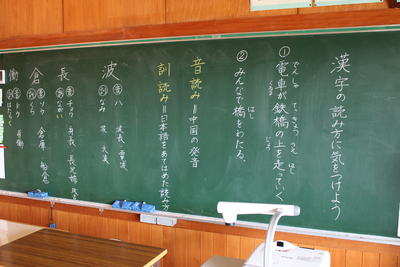 漢字の読み方に気をつけよう
①電車が鉄橋の上を走っていく。
②みんなで橋をわたる。
音読み＝中国の発音
訓読み＝日本語をあてはめた読み方
波
音ハ 波長 電波
訓なみ 波 大波
長
音チョウ 身長
訓ながい
倉
音ソウ 倉庫 船倉
訓くら
働
音ドウ 労働
訓はたらく